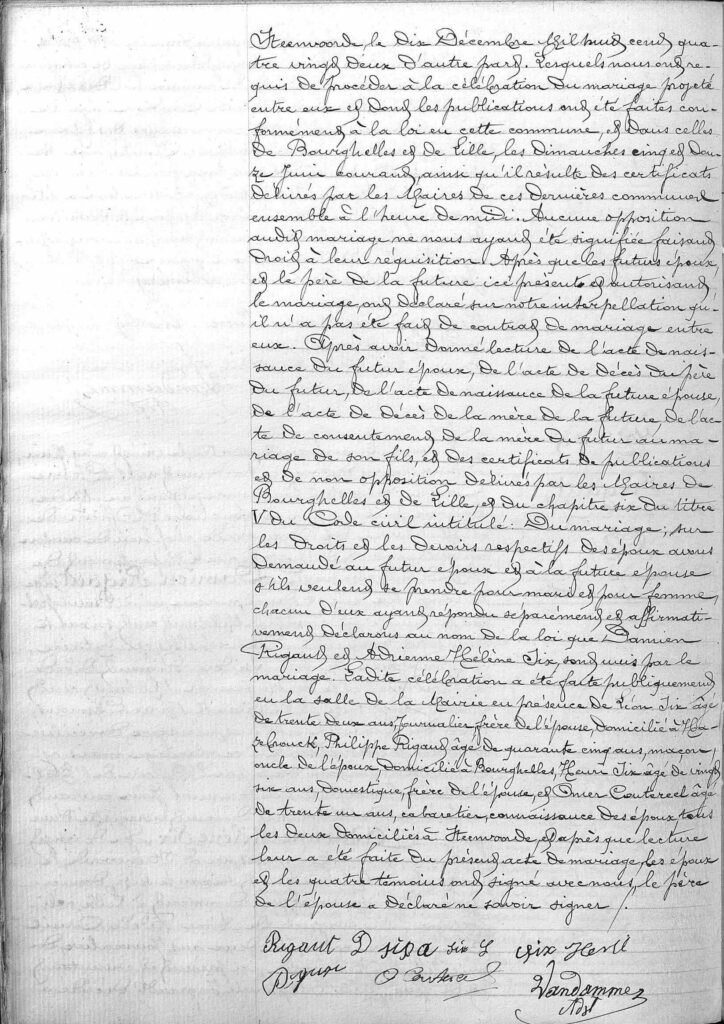 Steenvoorde, le dix Décembre Mil huit cent qua-
tre vingt deux d'autre part. Lesquels nous ont re-
quis de procéder à la célébration du mariage projeté
entre eux et dont les publications ont été faites con-
formément à la loi en cette commune, et dans celles
de Bourghelles et de Lille, les dimanches cinq et dou-
ze Juin courant, ainsi qu'il résulte des certificats
délivrés par les Maires de ces dernières communes
ensemble à l'heure de midi. Aucune opposition
audit mariage ne nous ayant été signifiée faisant
droit à leur réquisition. Après que les futurs époux
et le père de la future ici présents et autorisant
le mariage, ont déclaré sur notre interpellation qu-
il n'a pas été fait de contrat de mariage entre
eux. Après avoir donné lecture de l'acte de nais-
sance du futur époux, de l'acte de décès du père
du futur, de l'acte de naissance de la future épouse,
de l'acte de décès de la mère de la future, de l'ac-
te de consentement de la mère du futur au ma-
riage de son fils, et des certificats de publications
et de non opposition délivrés par les Maires de
Bourghelles et de Lille, et du chapitre six du titre
V du Code civil intitulé: Du mariage; sur
les droits et les devoirs respectifs des époux avons
demandé au futur époux et à la future épouse
s'ils veulent se prendre pour mari et pour femme,
chacun d'eux ayant répondu séparément et affirmati-
vement déclarons au nom de la loi que Damien
Rigaut et Adrienne Hélène Six, sont unis par le
mariage. Ladite célébration a été faite publiquement
en la salle de la Mairie en présence de Léon Six âgé
de trente deux ans, Journalier, frère de l'épouse, domicilié à Ha-
zebrouck, Philippe Rigaut âgé de quarante cinq ans, maçon
oncle de l'époux domicilié à Bourghelles, Henri Six âgé de vingt
six ans, domestique, frère de l'épouse, et Omer Coutereel âgé
de trente un ans, cabaretier, connaissance des époux tous
les deux domiciliés à Steenvoorde, et après que lecture
leur a été faite du présent acte de mariage, les époux
et les quatre témoins ont signé avec nous, le père
de l'épouse a déclaré ne savoir signer /.
Rigaut D six a six L six Henri
Vandamme
Adjt